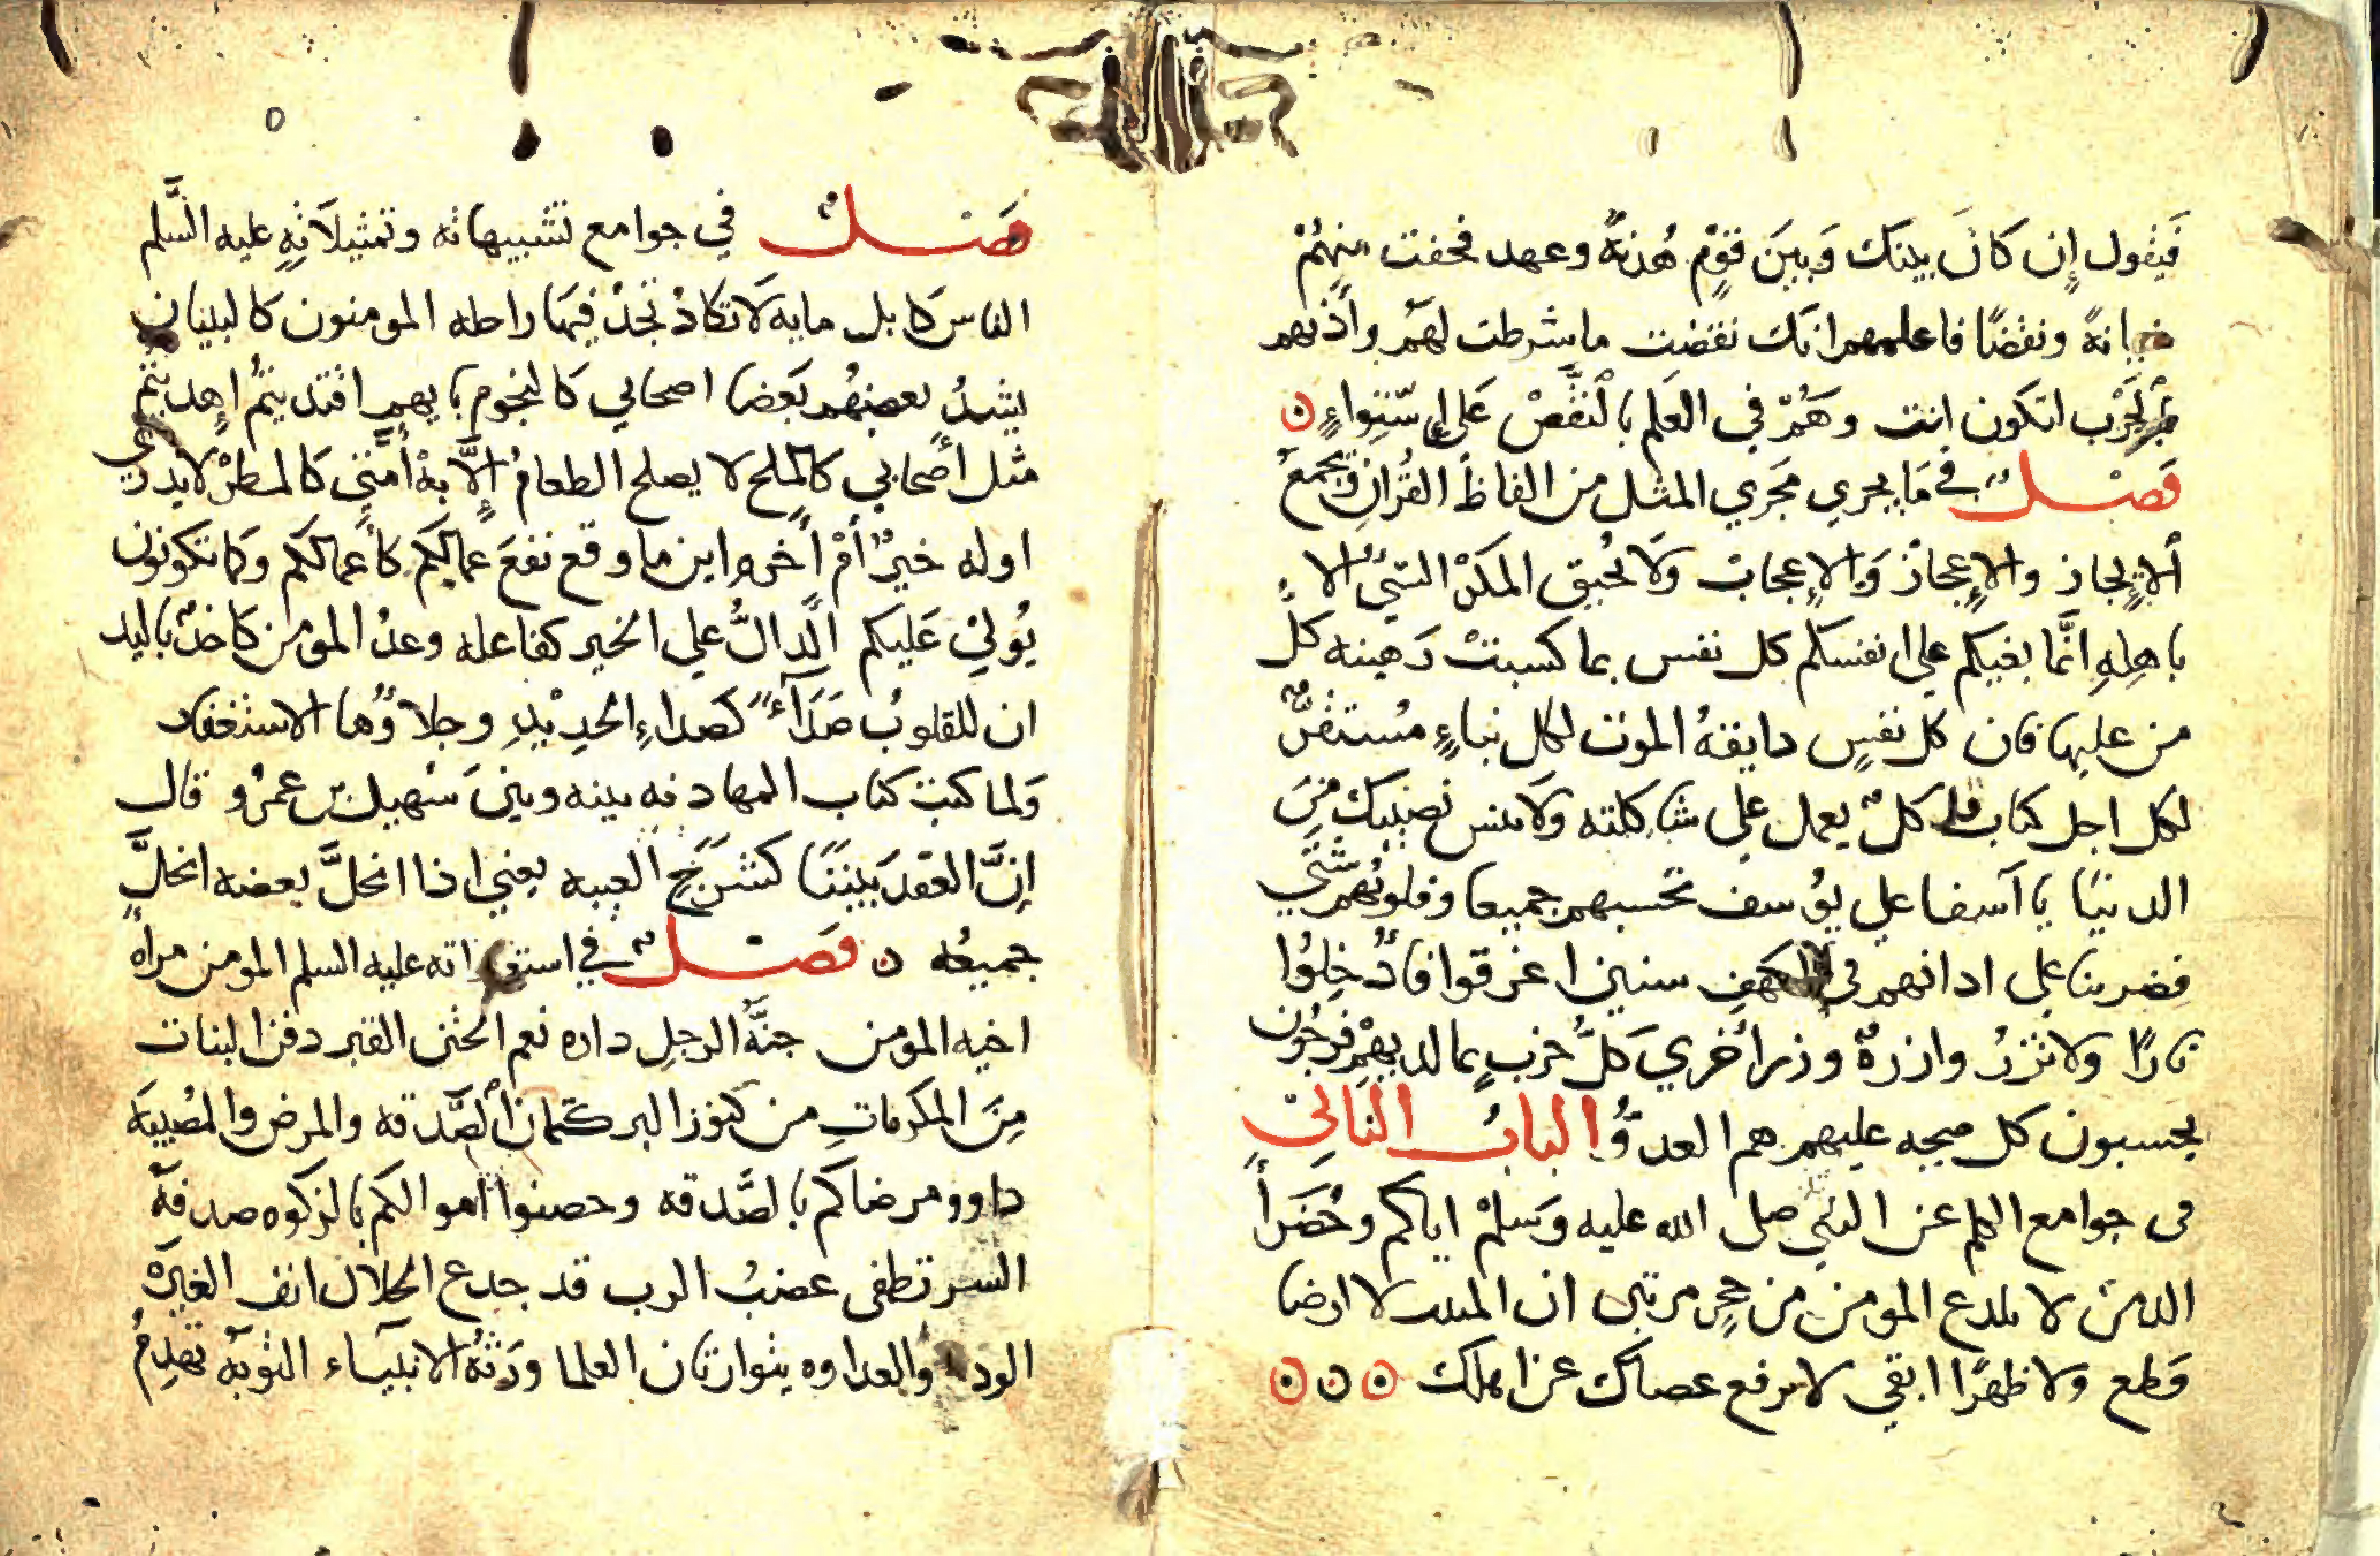 فَيقول إن كانَ بينك وَبينَ قوْمٍ هُدنةً وعهد فخفت منهُمْ
خيانةً ونقضًا فاعلمهم انك نقضت ما شرطت لهم وآذنهم
بالحَرْب لتكون انت وهُمْ في العَلم بالنّقْضْ عَلى استِواءٍ ن
فَصْل في مَا يجري مَجري المثل من الفاظ القُرانِ وَيجمعُ
ألإيجاز والإعجازْ وَالإعجابْ وَلاَ يُحيق المكْر السَّيّ الا
باهلِهِ انَّما بغيكم علي انفسكم كل نفس بما كسبتْ رَهينه كلُ
من عليها فان كل نفسٍ دايقةُ الموت لكل نباءٍ مُستقرٌ
لكل اجل كتاب قل كلٌ يعمل علي شاكلته وَلا تنس نصيبك مِنَ
الدنيَا يا آسفا علي يوُسف تحسبهم جميعا وقلوبُهم شَتّي
فضربنا علي ادانهم في الكهفِ سنين اغرقوا فادُخِلوُا
نارًا ولا تزرُ وازرةٌ وزر اُخري كلُّ حزبٍ بما لديهِمْ فرحُون
يحسبون كل صيحه عليهم هم العدوُّ البابُ الثانيْ
في جوامع الكلم عن النبي صلى الله عليه وَسلمْ اياكم وخُضَرأَ
الدمن لا يلدع المومن من جحرٍ مرتين ان المنبت لا ارضا
قَطع ولا ظهرًا ابقي لا ترفع عصاك عن اهلك ن ن ن
فصل في جوامع تشبيهاته وتمثيلاَتِهِ عليه السَّلم
الناس كَابل مايه لاَ تكادُ تجدُ فيهَا راحله المومنون كالبنيان
يشدُ بعضهُم بَعضا اصحابي كالنجوم بايهم اقتديتمُ اهديتمُ
مثل أصحابي كالملح لا يصلح الطعامُ إلَّا بهْ أمَّتي كالمطرْ لا يدري
اوله خيرٌ أمْ أخره اين ما وقع نفعَ عمالكم كأعمالكم وَكما تكونون
يُوليٰ عَليكم الَّدالُّ علي الخير كفاعله وعدُ المومن كاخذٌ باليد
ان للقلوبُ صَدَآءً كصداءِ الحدِيْدِ وجلاوُها الاستغفار
وَلما كتب كتاب المهادنه بينه وبينَ سُهيل بن عمرُو قال
إنَّ العَقدَ بينَنَا كشرَجِ العيبه يعني اذا انحلَّ بعضه انحلَّ
جميعُه ن فصل في استعاراته عليه السلم المومن مراه
اخيه المومن جنَّة الرجلِ داره نعم الختن القبر دفن البنات
مِنَ المكرماتِ من كنوز البر كتمان ألصَّدقه والمرض والمُصيبَه
داوو مرضاكم بالصَّدقه وحصنوا أموالكم بالزكوه صدقَة
السر تطفى غضبُ الرب قد جدع الحلال انف الغيرَه
الود والعداوه يتوارثان العلما ورَثةُ الانبياء التوبَه تهدِمُ